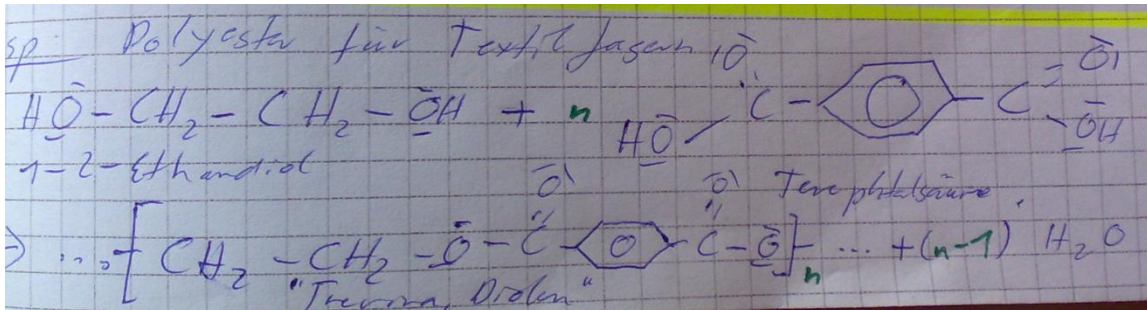 sp: Polyester für Textilfasern
HO-CH2-CH2-OH + n HO-C(=O)-⌬-C(=O)-OH
1-2-Ethandiol
Terephtalsäure
→ ...-[CH2-CH2-O-C(=O)-⌬-C(=O)-O]n-... + (n-1) H2O
"Trevira, Diolen"